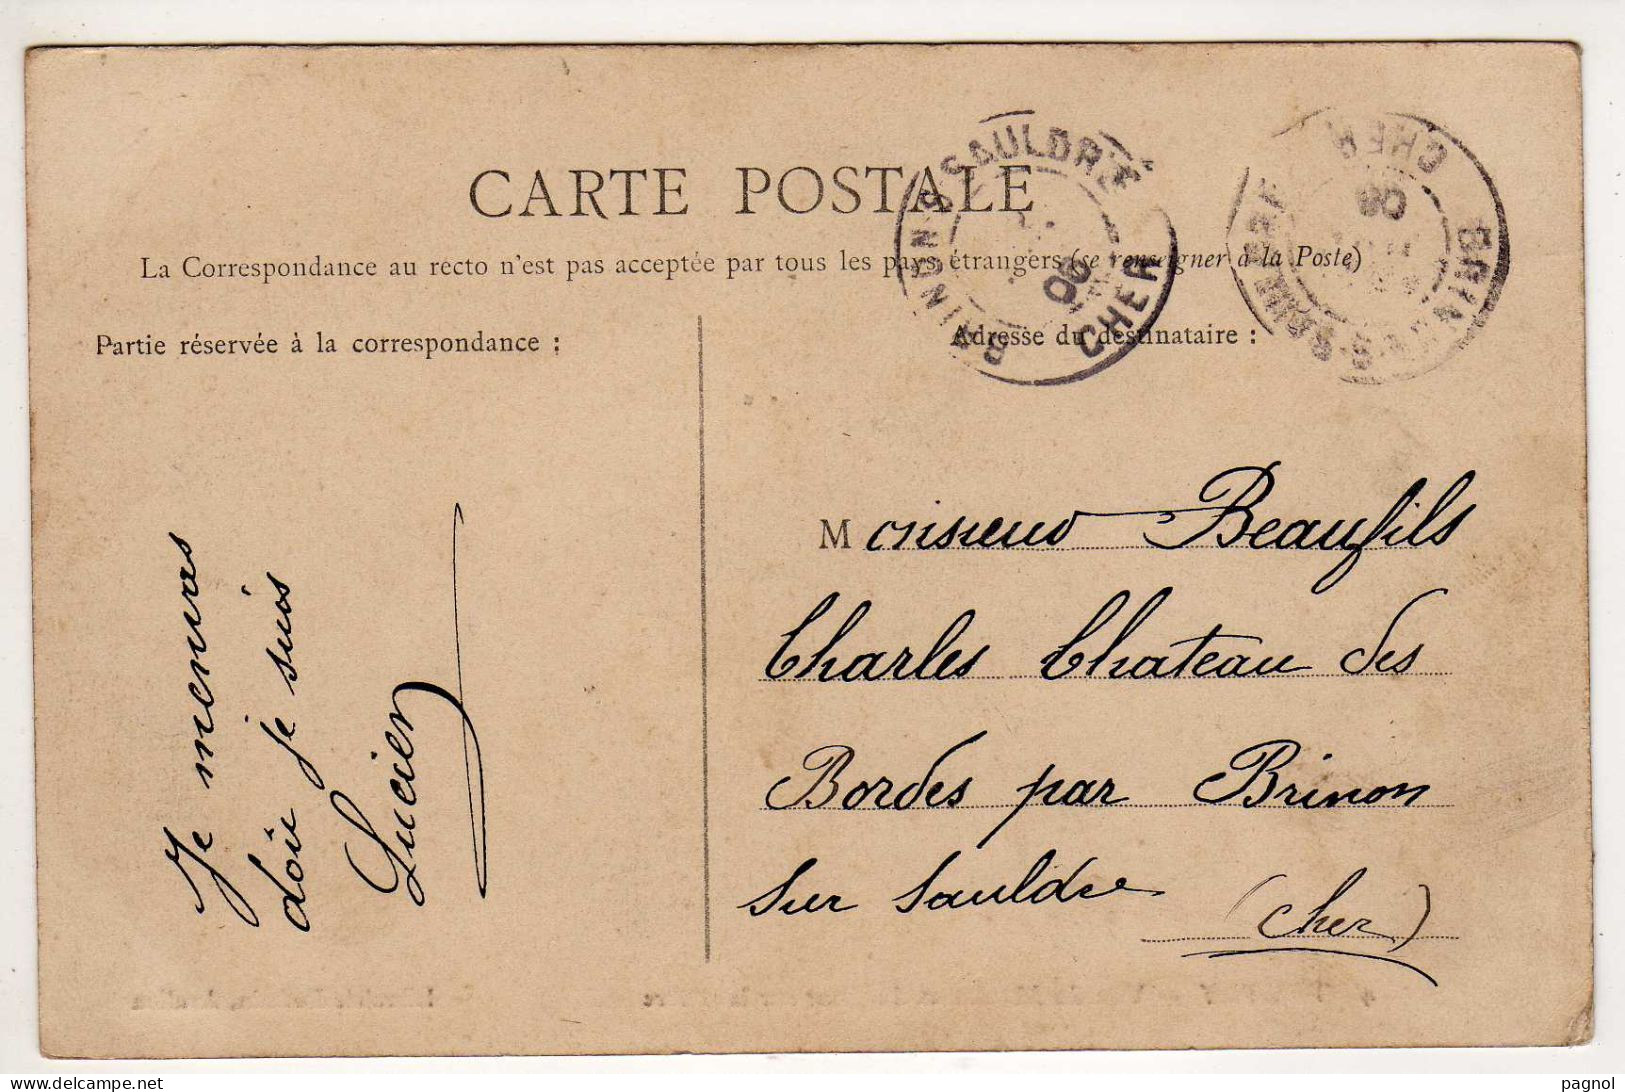 CARTE POSTALE
La Correspondance au recto n'est pas acceptée par tous les pays étrangers (se renseigner à la Poste)
Partie réservée à la correspondance :
Adresse du destinataire :
BRINON-S-SAULDRE
CHER
06
CHER
06
BRINON-S-SAULDRE
Monsieur Beaufils
Charles Chateau des
Bordes par Brinon
Sur Sauldre (Cher)
Je
doù je suis
Lucien
delcampe.net
pagnol